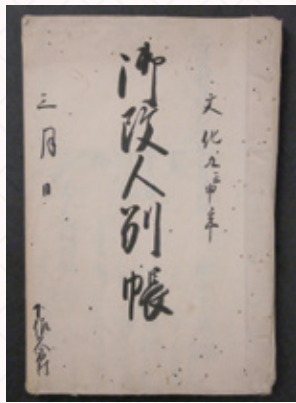 文化九壬申年
御改人別帳
三月日